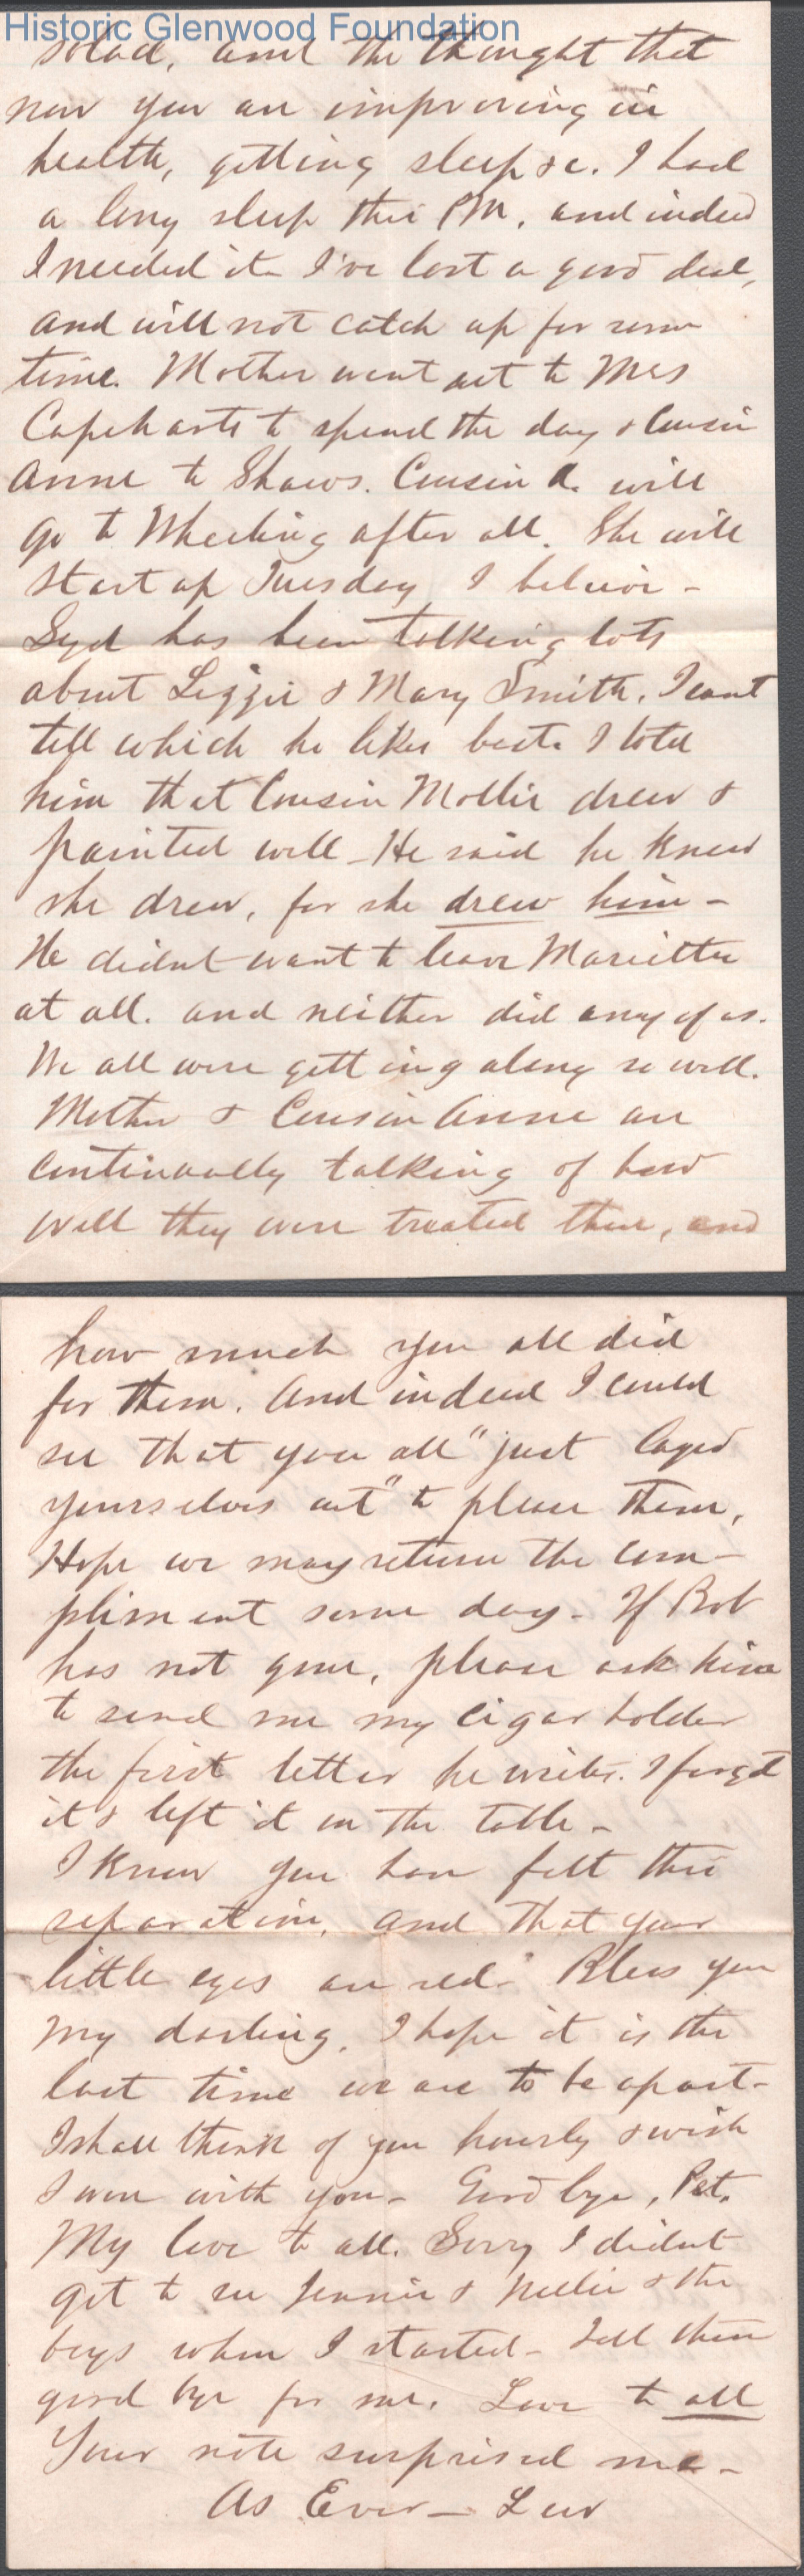 Historic Glenwood Foundation
and the thought that
now you are improving in
health, getting sleep &c. I had
a long sleep this PM, and indeed
I needed it. I've lost a good deal,
and will not catch up for some
time. Mother went out to Mrs
Capeharts to spend the day & Cousin
Anne to Shaws. Cousin A. will
go to Wheeling after all. She will
start up Tuesday I believe -
Syd has been talking lots
about Lizzie & Mary Smith. I cant
tell which he likes best. I told
him that Cousin Mollie drew &
painted well - He said he knew
she drew, for she drew him -
He didnt want to leave Marietta
at all. and neither did any of us.
We all were getting along so well.
Mother & Cousin Anne are
continually talking of how
well they were treated there, and
how much you all did
for them. And indeed I could
see that you all "just layed
yourselves out" to please them,
Hope we may return the com-
pliment some day - If Bob
has not gone, please ask him
to send me my cigar holder
the first letter he writes. I forgot
it & left it on the table -
I know you have felt this
separation, and that your
little eyes are red. Bless you
my darling, I hope it is the
last time we are to be apart -
I shall think of you hourly & wish
I were with you - Good bye, Pet.
My love to all. Sorry I didnt
get to see Jennie & Nellie & the
boys when I started - Tell them
good bye for me. Love to all
Your note surprised me -
As Ever - Luv